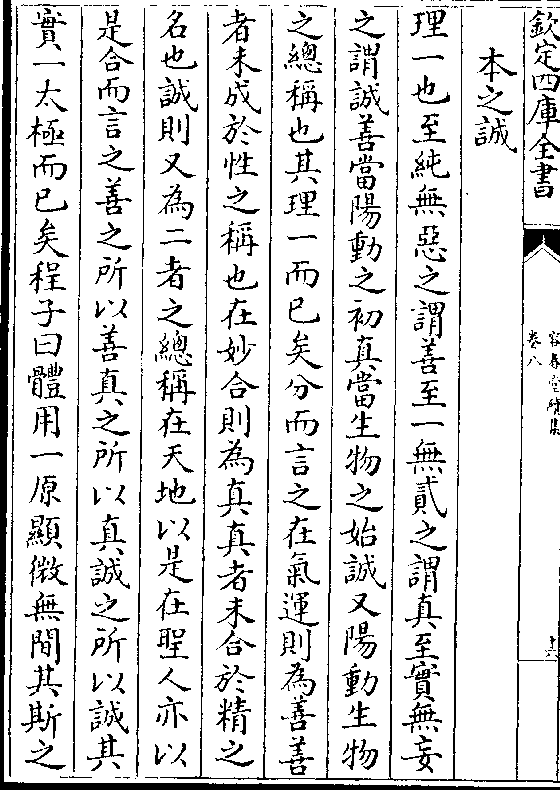 欽定四庫全書
容春堂續集
卷八
十六
本之誠
理一也至純無惡之謂善至一無貳之謂真至實無妄
之謂誠善當陽動之初真當生物之始誠又陽動生物
之總稱也其理一而已矣分而言之在氣運則為善善
者未成於性之稱也在妙合則為真真者未合於精之
名也誠則又為二者之總稱在天地以是在聖人亦以
是合而言之善之所以善真之所以真誠之所以誠其
實一太極而已矣程子曰體用一原顯微無間其斯之